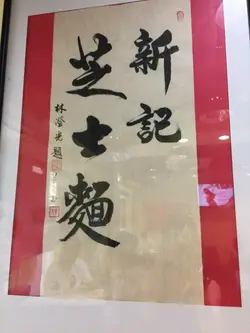 新記
芝士麵
林瑩光題